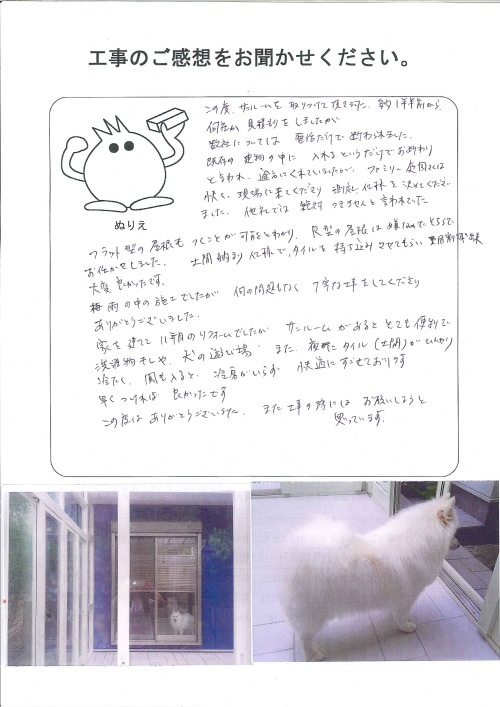 工事のご感想をお聞かせください。
ぬりえ
この度、サンルームを取りつけて頂きました。約1年半前から、
何社か見積りをしましたが
数社については電話だけで断わられました。
既存の建物の中に入れるというだけでお断わり
と言われ、途方にくれていましたが、ファミリー庭園さんは
快く、現場に来てくださり 測定し仕様を決めてください
ました。他社では絶対つきませんと言われていた
フラット型の屋根もつくことが可能とわかり、R型の屋根は嫌なのでそちらで
お任せしました。土間納まり仕様で、タイルを持ち込みさせてもらい 費用削減出来
大変良かったです。
梅雨の中の施工でしたが 何の問題もなく 丁寧な工事をしてくださり
ありがとうございました。
家を建てて11年目のリフォームでしたが サンルームがあるととても便利で
洗濯物干しや、犬の遊び場 また、夜でもタイル(土間)がひんやり
冷たく、風も入ると、冷房がいらず 快適にすごせております
早くつければ良かったです
この度はありがとうございました。また工事の際にはお願いしようと
思っています。